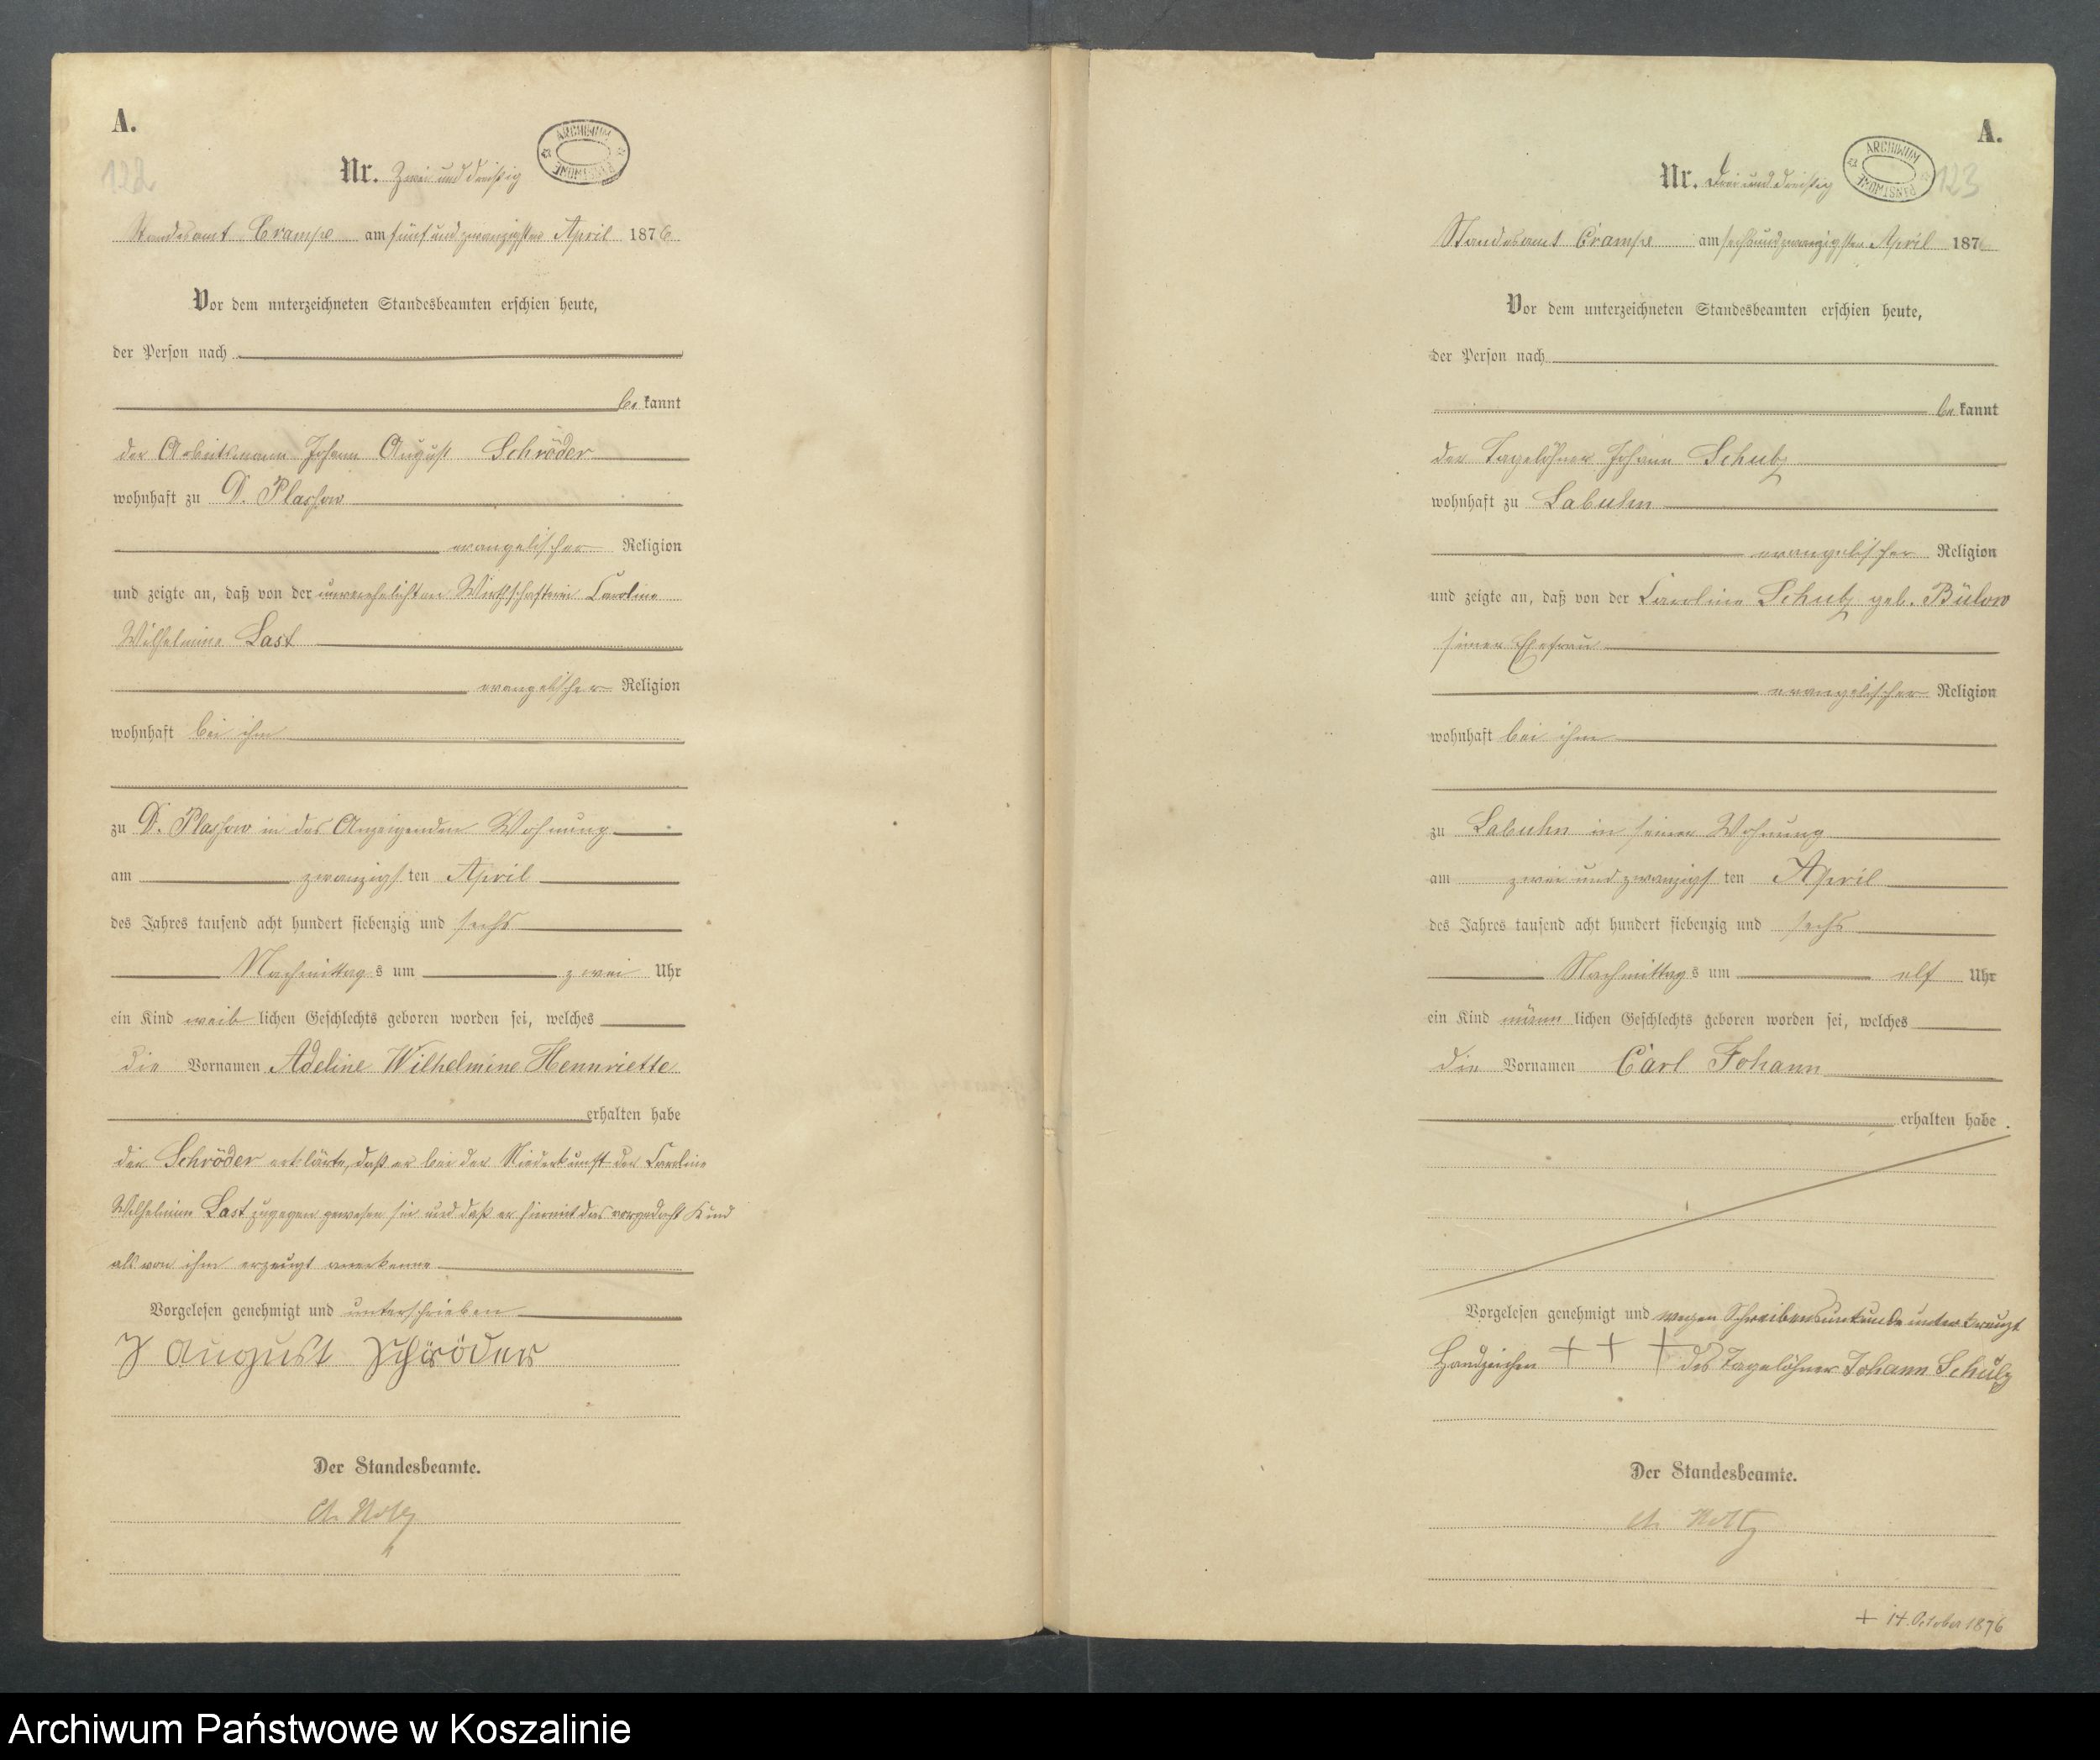 A.
122
Nr. Zwei und dreißig
ARCHIWUM PAŃSTWOWE
Standesamt Crampe am fünf und zwanzigsten April 1876
Vor dem unterzeichneten Standesbeamten erschien heute,
der Person nach
be kannt
der Arbeitsmann Johann August Schröder
wohnhaft zu D. Plassow
evangelischer Religion
und zeigte an, daß von der unverehelichten Wirthschafterin Caroline
Wilhelmine Last
evangelischer Religion
wohnhaft bei ihm
zu D. Plassow in des Anzeigenden Wohnung
am zwanzigs ten April
des Jahres tausend acht hundert siebenzig und sechs
Nachmittag s um zwei Uhr
ein Kind weib lichen Geschlechts geboren worden sei, welches
die Vornamen Adeline Wilhelmine Hennriette
erhalten habe
der Schröder erklärte, daß er bei der Niederkunft der Caroline
Wilhelmine Last zugegen gewesen sei und daß er hiermit das vorgedacht Kind
als von ihm erzeugt anerkenne
Vorgelesen genehmigt und unterschrieben
J August Schröder
Der Standesbeamte.
A.
123
Nr. Drei und dreißig
ARCHIWUM PAŃSTWOWE
Standesamt Crampe am sechs und zwanzigsten April 1876
Vor dem unterzeichneten Standesbeamten erschien heute,
der Person nach
be kannt
der Tagelöhner Johann Schulz
wohnhaft zu Labuhn
evangelischer Religion
und zeigte an, daß von der Caroline Schulz geb. Bülow
seiner Ehefrau
evangelischer Religion
wohnhaft bei ihm
zu Labuhn in seiner Wohnung
am zwei und zwanzigs ten April
des Jahres tausend acht hundert siebenzig und sechs
Nachmittag s um elf Uhr
ein Kind männ lichen Geschlechts geboren worden sei, welches
die Vornamen Carl Johann
erhalten habe.
Vorgelesen genehmigt und wegen Schreibensunkunde unterkreuzt
Handzeichen + + + des Tagelöhner Johann Schulz
Der Standesbeamte.
+ 14. October 1876
Archiwum Państwowe w Koszalinie